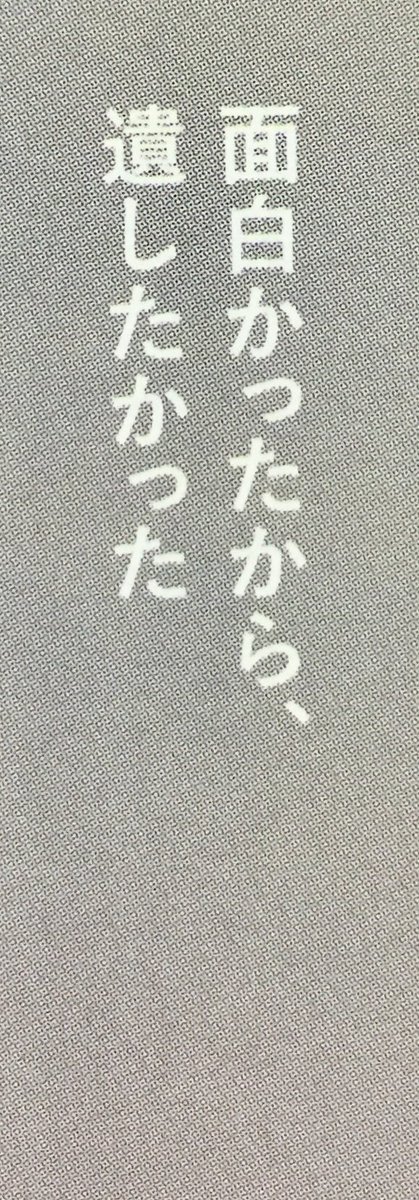 面白かったから、
遺したかった